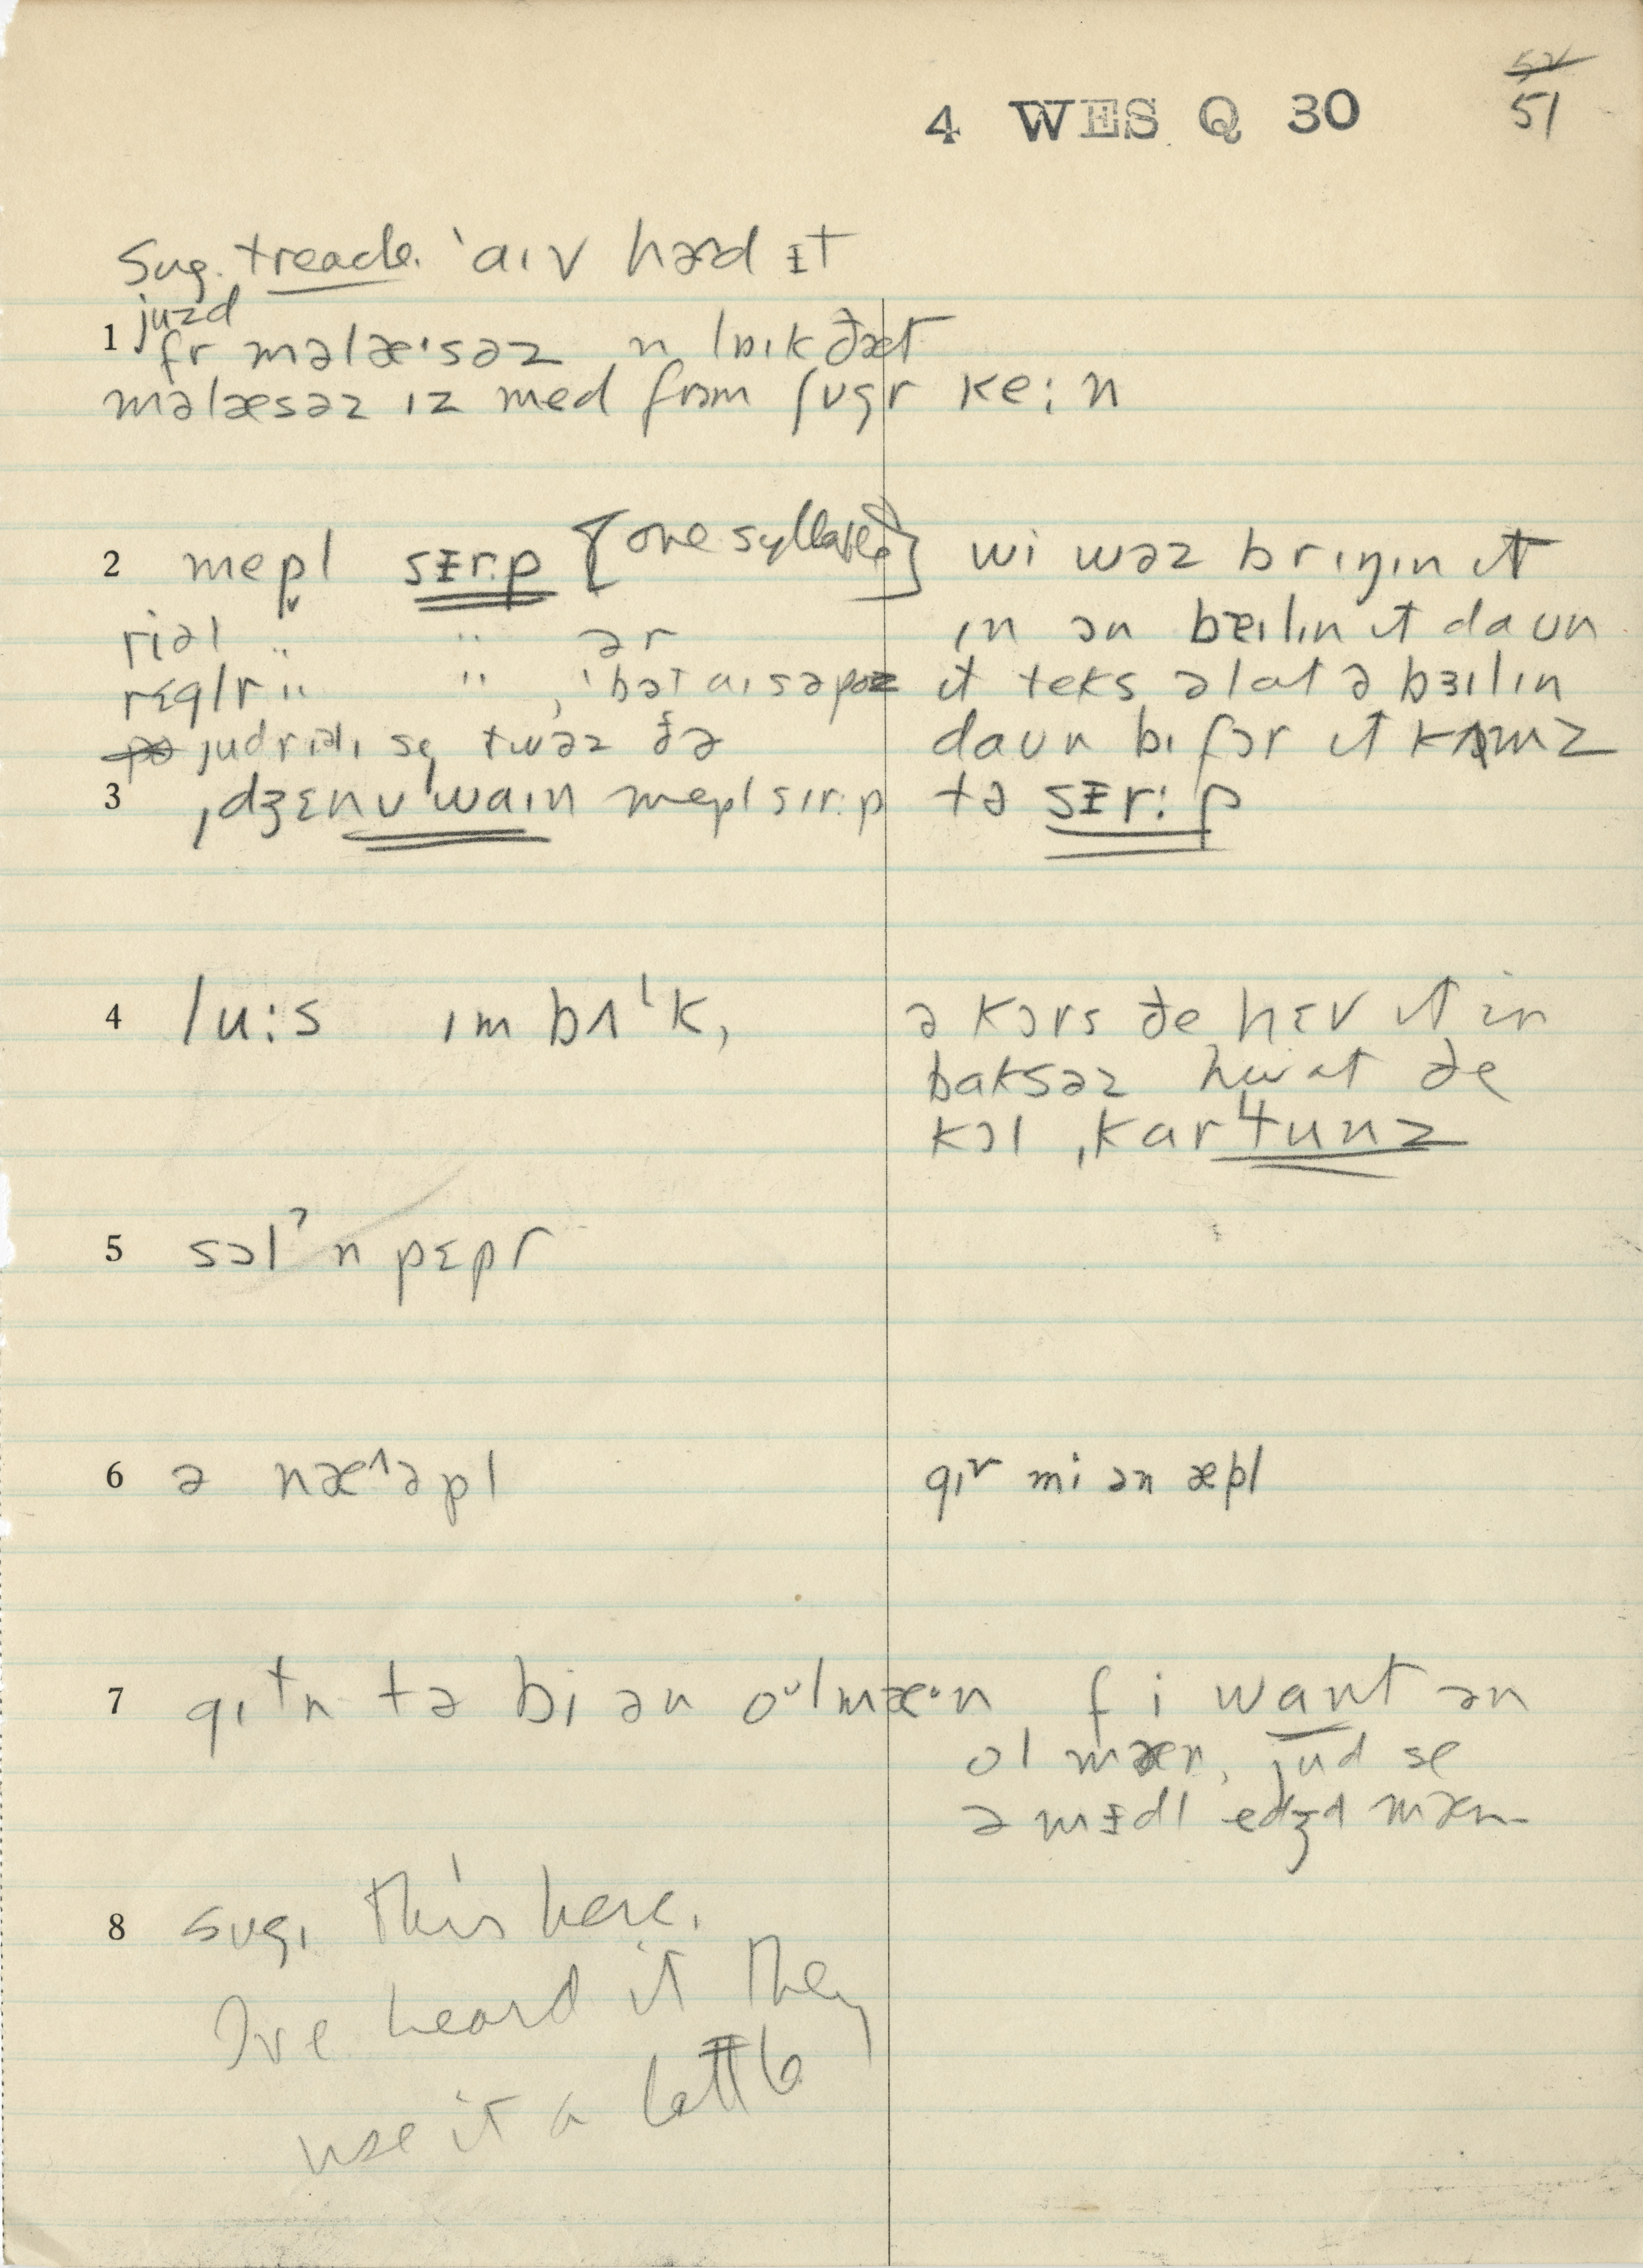 52
4 WES Q 30 51
Sug. treacle. 'aɪv hərd ɪt
juzd
1 fr məlæ·səz n lɒɪk ðæt
məlæsəz ɪz med frɔm ʃʊgr ke:n
2 mepl sɪr:p [one syllable] wi wəz brɪŋɪn ɪt
riəl " " ər ɪn ən bɜɪlɪn ɪt daun
rɛglr " " , 'bət aɪ səpoz ɪt teks əlat ə bɜɪlɪn
judriəlɪ se twəz ðə daun bɪfɔr ɪt kʌmz
3 ˌdʒɛnʊ'waɪn mepl sɪr:p tə sɪr:p
4 lu:s ɪm bʌˈk, ə kɔrs ðe hɛv ɪt ɪn
baksəz hwat ðe
kɔl ˌkar'tunz
5 sɔlˀ n pɛpr
6 ə næ^əpl gɪv mi ən æpl
7 gɪtn tə bi ən oᵘlmæ·n f i want ən
ol mæn, jud se
ə mɪdl edʒd mæn
8 sug. this here.
I've heard it they
use it a little